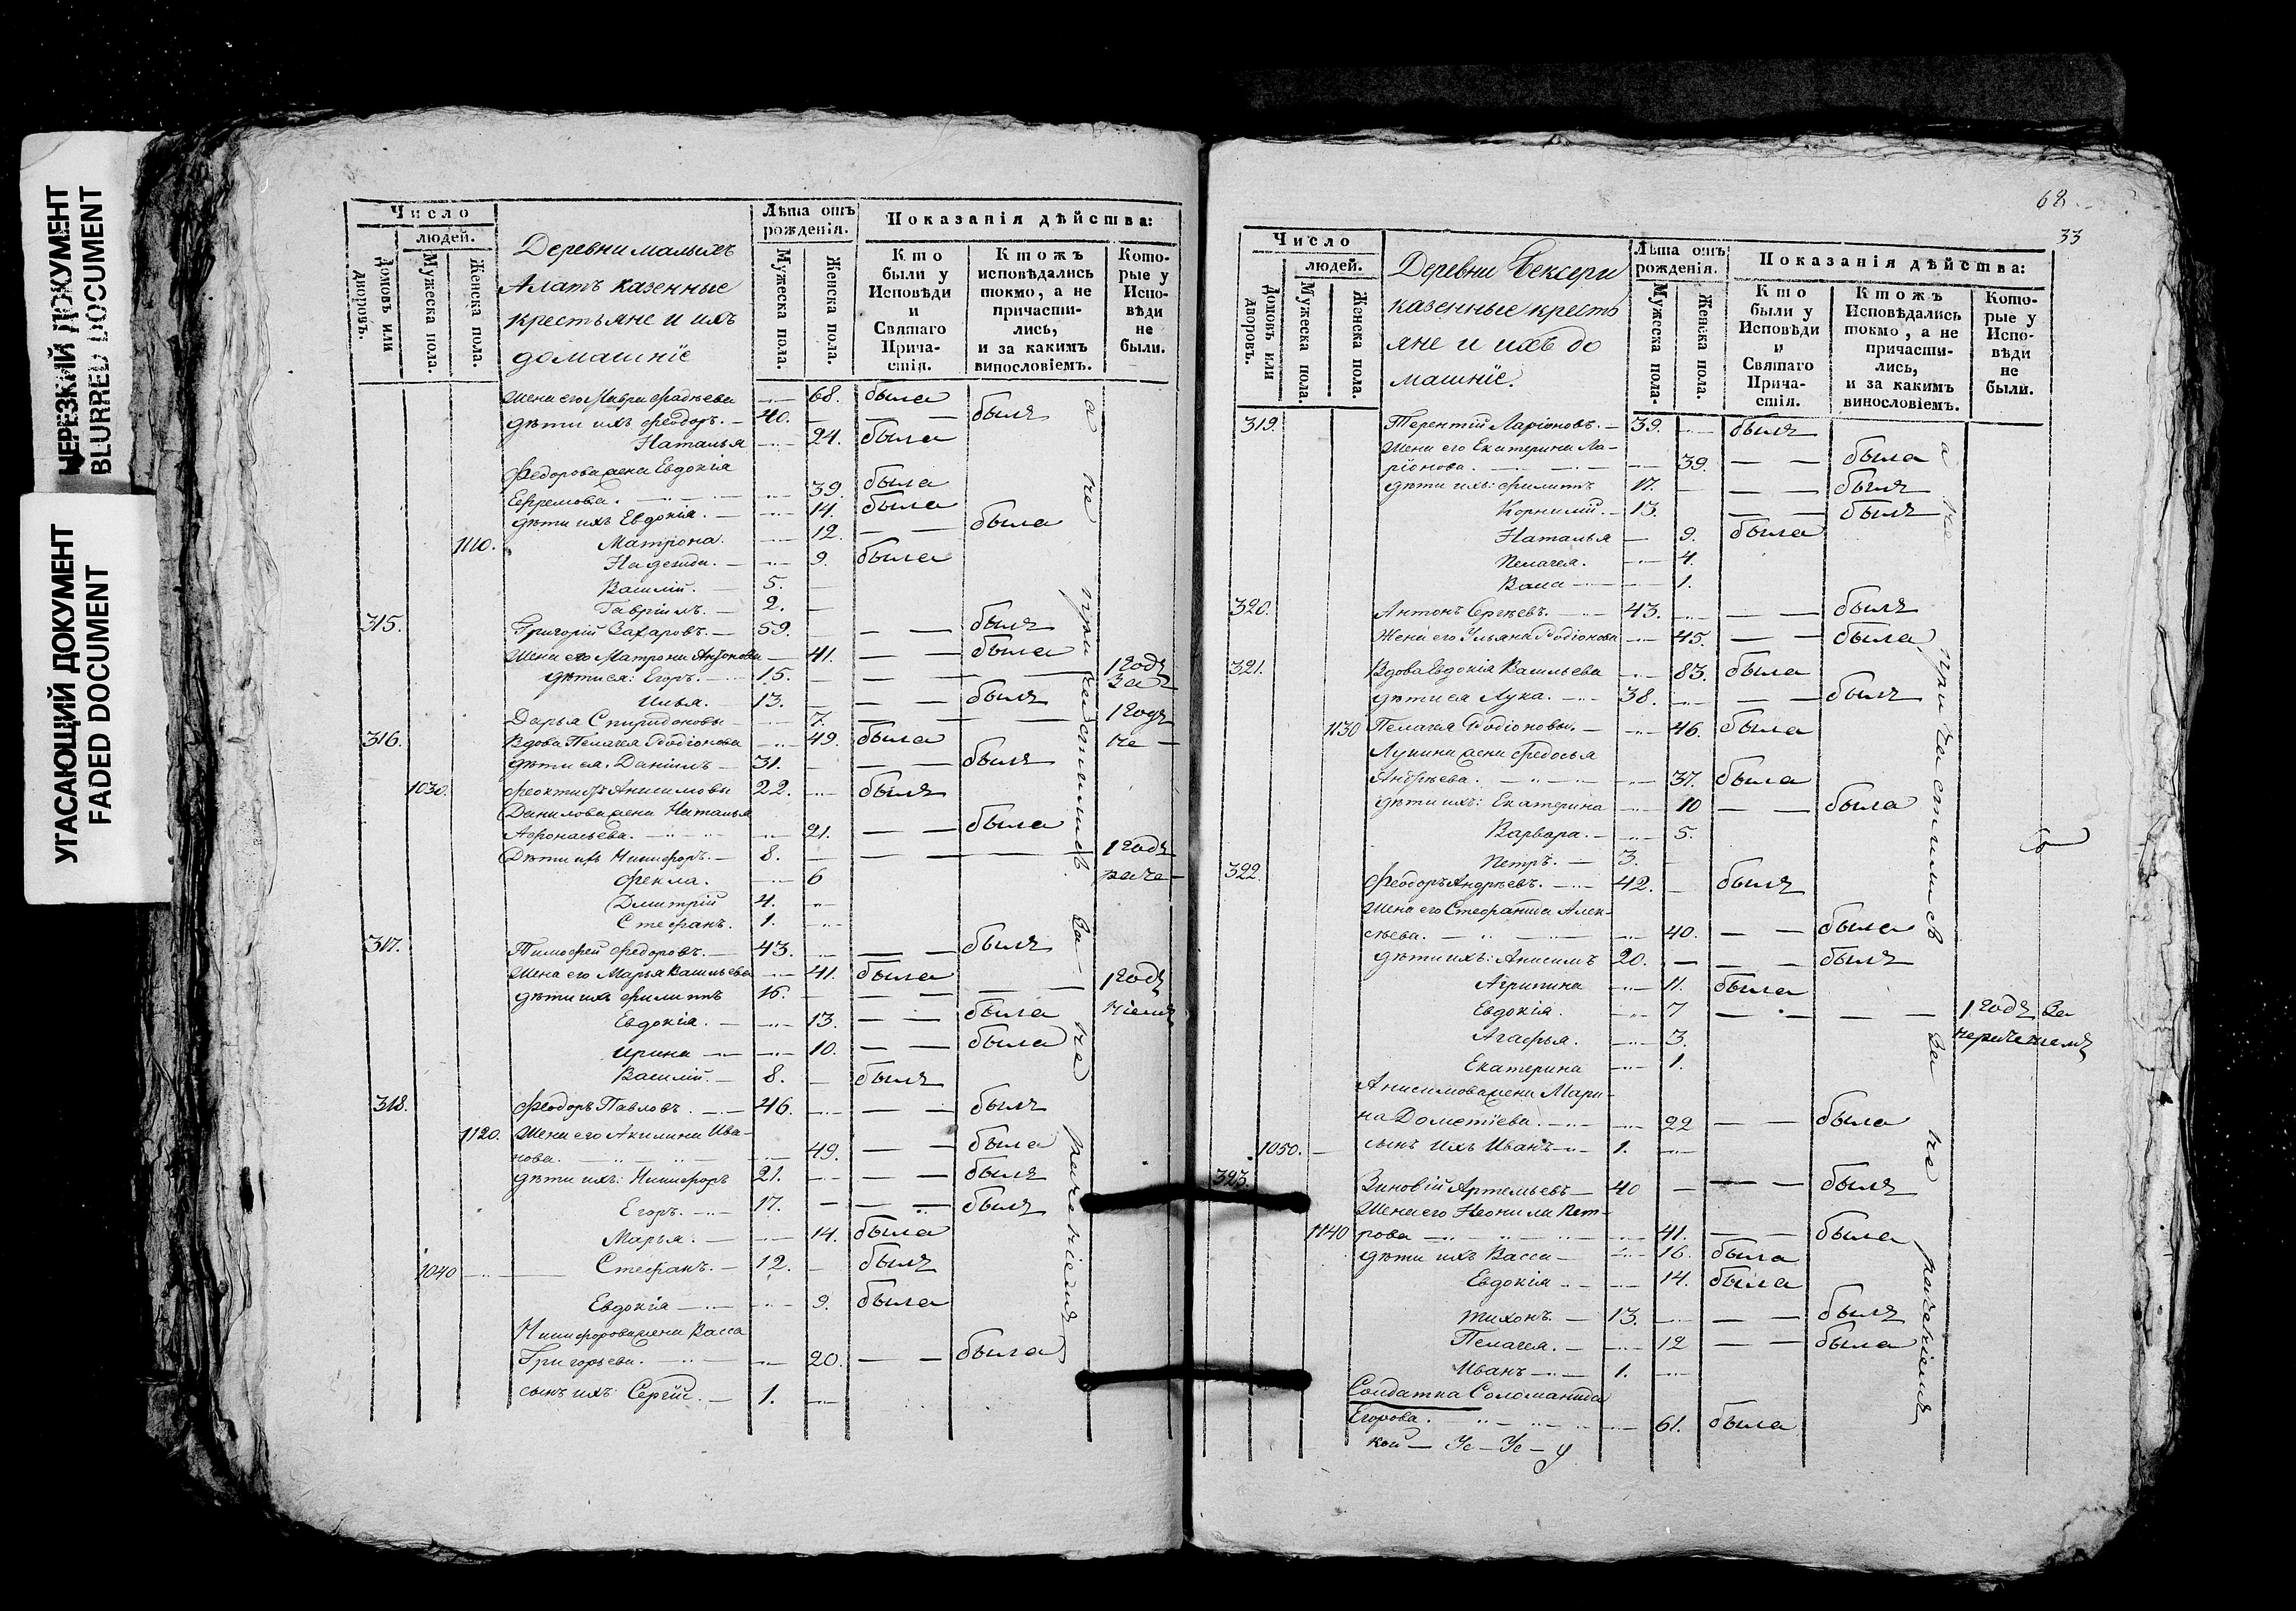 ЧЕРЕЗКИЙ ДОКУМЕНТ
BLURRED DOCUMENT
УГАСАЮЩИЙ ДОКУМЕНТ
FADED DOCUMENT
Число
людей.
Домовъ или дворовъ.
Мужеска пола.
Женска пола.
Деревни малыхъ
Алатъ казенные
крестьяне и ихъ
домашніе
Лѣта отъ рожденія.
Мужеска пола.
Женска пола.
Показанія дѣйства:
Кто были у Исповѣди и Святаго Причастія.
Ктожъ исповѣдались токмо, а не причастились, и за какимъ винословіемъ.
Которые у Исповѣди не были.
Жена его Мавра Фадѣева — 68. была
дѣти ихъ Феодоръ. — 40. — — былъ
Наталья — 24. была
Федорова жена Евдокія
Ефремова. — 39. была
дѣти ихъ Евдокія. — 14. была
1110. Матрона. — 12. — — была
Надежда. — 9. была
Василій. — 5.
Гавріилъ. — 2. —
315. Григорій Захаровъ. — 59. — — былъ
Жена его Матрона Антонова — 41. — — была
дѣти ея: Егоръ. — 15. — — 1 годъ
за
Илья. — 13. — — былъ
Дарья Спиридонова — 7. — — 1 годъ
316. Вдова Пелагея Родіонова — 49. была не —
дѣти ея. Даніилъ — 31. — — былъ
1030. Феоктистъ Анисимовъ 22. — былъ
Данилова жена Наталья
Афонасьева. — 21. — — была
Дѣти ихъ Никифоръ. — 8. — — 1 годъ
Фекла. — 6
Дмитрій 4. —
Стефанъ. 1. —
317. Тимофей Федоровъ. — 43. — — былъ
Жена его Марья Васильева — 41. была
дѣти ихъ Филиппъ 16. — — — 1 годъ
Евдокія. — 13. — — была
Ирина — 10. — — была
Василій. — 8. — былъ
318. Феодоръ Павловъ. — 46. — — былъ
1120. Жена его Акилина Ива-
нова. — 49. — — была
дѣти ихъ: Никифоръ 21. — — былъ
Егоръ. — 17. — — былъ
Марья. — 14. была
1040 — Стефанъ. — 12. — былъ
Евдокія — 9. была
Никифорова жена Васса
Григорьева. — 20. — — была
сынъ ихъ Сергій. — 1. —
а не причастились. за не раченіемъ
68
33
Число
людей.
Домовъ или дворовъ.
Мужеска пола.
Женска пола.
Деревни Бексери
казенные кресть
яне и ихъ до
машніе.
Лѣта отъ рожденія.
Мужеска пола.
Женска пола.
Показанія дѣйства:
Кто были у Исповѣди и Святаго Причастія.
Ктожъ Исповѣдались токмо, а не причастились, и за какимъ винословіемъ.
Которые у Исповѣди не были.
319. Терентій Ларіоновъ. — 39. — былъ
Жена его Екатерина Ла-
ріонова. — 39. — — была
дѣти ихъ: Филиппъ 17. — — былъ
Корнилій. — 13. — — былъ
Наталья — 9. была
Пелагея. — 4.
Васса — 1.
320. Антонъ Сергѣевъ. — 43. — — былъ
Жена его Ульяна Родіонова — 45. — — была
321. Вдова Евдокія Васильева — 83. была
дѣти ея Лука. — 38. — — былъ
1130 Пелагея Родіонова. — 46. была
Лукина жена Федосья
Андрѣева. — 37. была
дѣти ихъ: Екатерина — 10 — — была
Варвара. — 5.
Петръ. — 3. —
322. Феодоръ Андрѣевъ. — 42. — былъ
Жена его Стефанида Алек-
сѣева. — 40. — — была
дѣти ихъ: Анисимъ 20. — — былъ
Агрипина — 11. была
Евдокія. — 7 — — — 1 годъ за
Агафья. — 3. нерачениемъ
Екатерина — 1.
Анисимова жена Мари-
на Дометіева. — 22 — — была
1050. — сынъ ихъ Иванъ — 1. —
323. Зиновій Артемьевъ — 40 — — былъ
Жена его Неонила Пет-
1140 рова — 41. — — была
дѣти ихъ Васса — 16. была
Евдокія — 14. была
Тихонъ. — 13. — — былъ
Пелагея. — 12 — — была
Иванъ — 1. —
Солдатка Соломанида
Егорова. — 61. была
а не причастились за не раченіемъ